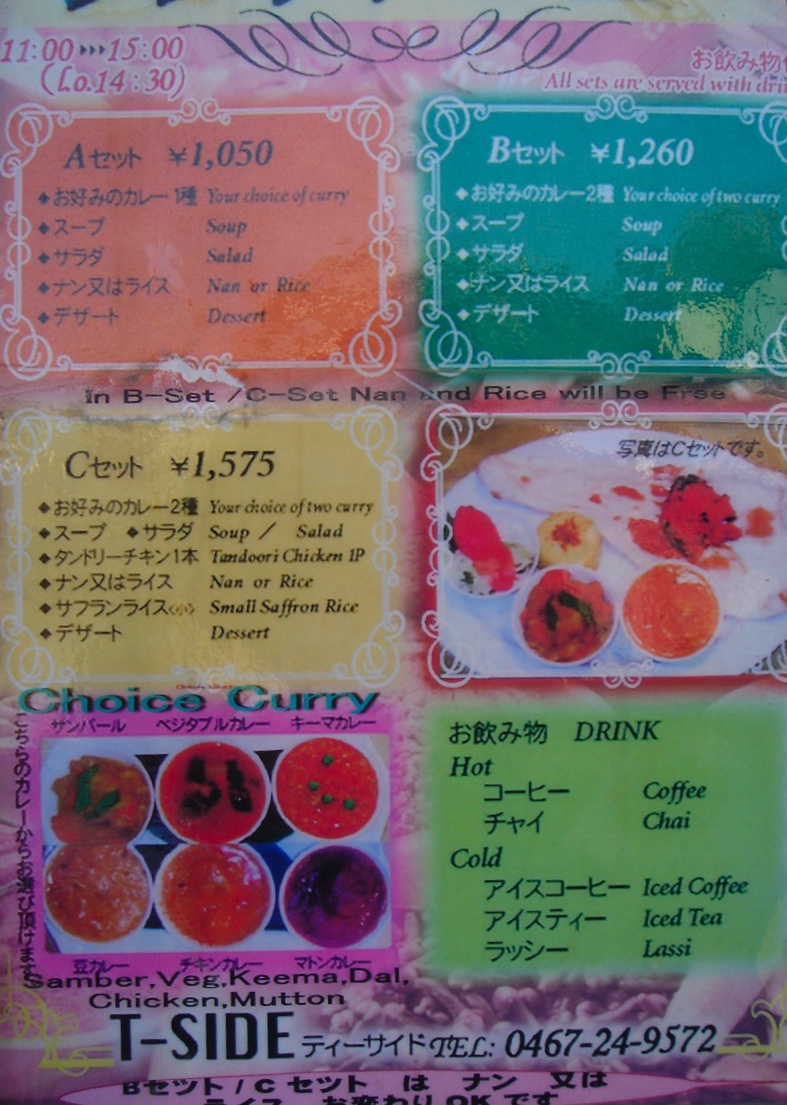 11:00 ▸▸▸ 15:00
(L.o.14:30)
お飲み物
All sets are served with
Aセット ¥1,050
◆お好みのカレー1種 Your choice of curry
◆スープ Soup
◆サラダ Salad
◆ナン又はライス Nan or Rice
◆デザート Dessert
Bセット ¥1,260
◆お好みのカレー2種 Your choice of two curry
◆スープ Soup
◆サラダ Salad
◆ナン又はライス Nan or Rice
◆デザート Dessert
In B-Set /C-Set Nan and Rice will be Free
Cセット ¥1,575
◆お好みのカレー2種 Your choice of two curry
◆スープ ◆サラダ Soup / Salad
◆タンドリーチキン1本 Tandoori Chicken 1P
◆ナン又はライス Nan or Rice
◆サフランライス<小> Small Saffron Rice
◆デザート Dessert
写真はCセットです。
Choice Curry
サンバール ベジタブルカレー キーマカレー
こちらのカレーからお選び頂けます
豆カレー チキンカレー マトンカレー
Samber,Veg,Keema,Dal,
Chicken,Mutton
お飲み物 DRINK
Hot
コーヒー Coffee
チャイ Chai
Cold
アイスコーヒー Iced Coffee
アイスティー Iced Tea
ラッシー Lassi
T-SIDE ティーサイド TEL: 0467-24-9572
Bセット / C セット は ナン 又は
ライス お変わり OK です